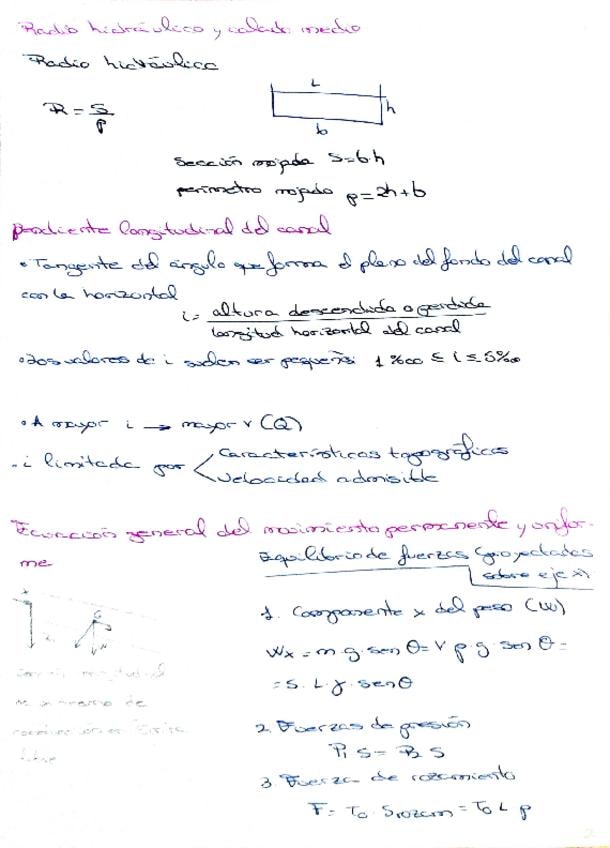 Radio hidráulico y calado medio
Radio hidráulico
R = S / P
L
h
b
sección mojada S=b·h
perímetro mojado p=2h+b
pendiente longitudinal del canal
• Tangente del ángulo que forma el plano del fondo del canal
con la horizontal
i = altura descendida o perdida / longitud horizontal del canal
• Los valores de i suelen ser pequeños 1 %oo ≤ i ≤ 5%o
• A mayor i → mayor v (Q)
• i limitada por < Características topográficas
Velocidad admisible
Ecuación general del movimiento permanente y unifor-
me
Equilibrio de fuerzas (proyectadas
sobre eje x)
1. Componente x del peso (W)
Wx = m·g·sen θ = V ρ·g·sen θ =
= S·L·γ·sen θ
2. Fuerzas de presión
P1 S = P2 S
3. Fuerza de rozamiento
F = To·Srozam = To L p
de
2